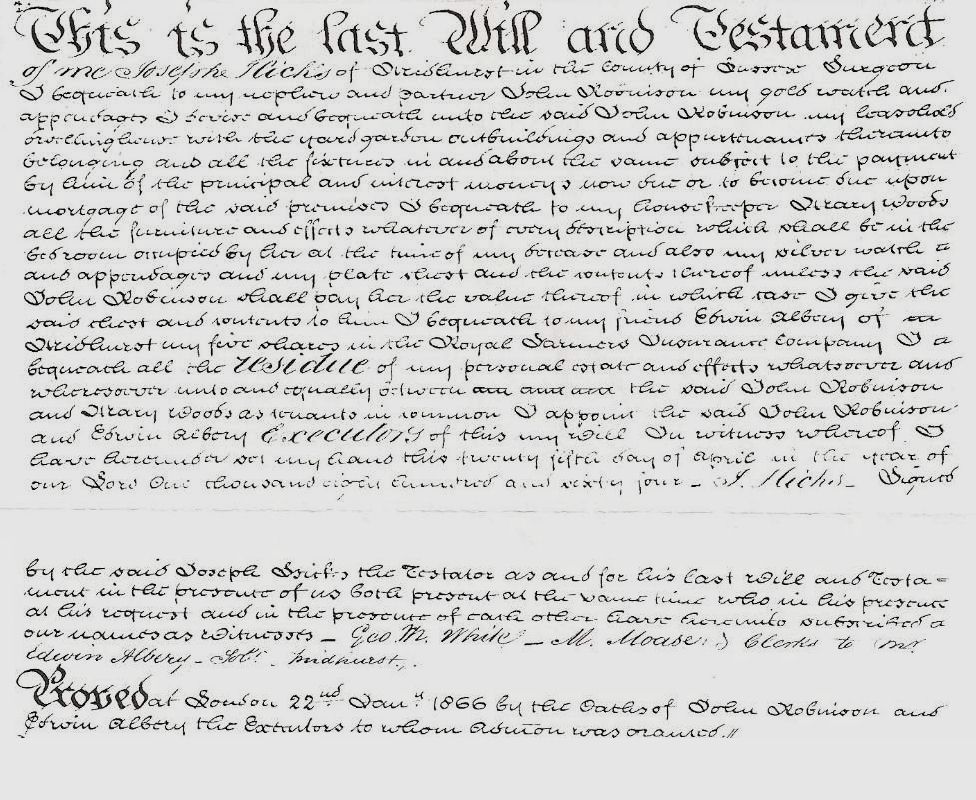 This is the last Will and Testament
of me Josephe Hicks of Midhurst in the County of Sussex Surgeon
I bequeath to my nephew and partner John Robinson my gold watch and
appendages I devise and bequeath unto the said John Robinson my leasehold
dwellinghouse with the yard garden outbuildings and appurtenances thereunto
belonging and all the fixtures in and about the same subject to the payment
by him of the principal and interest moneys now due or to become due upon
mortgage of the said premises I bequeath to my housekeeper Mary Woods
all the furniture and effects whatever of every description which shall be in the
bedroom occupied by her at the time of my decease and also my silver watch
and appendages and my plate chest and the contents thereof unless the said
John Robinson shall pay her the value thereof in which case I give the
said chest and contents to him I bequeath to my friend Edwin Albery of
Midhurst my five shares in the Royal Farmers Insurance Company I
bequeath all the residue of my personal estate and effects whatsoever and
wheresoever unto and equally between the said John Robinson
and Mary Woods as tenants in common I appoint the said John Robinson
and Edwin Albery Executors of this my Will In witness whereof I
have hereunder set my hand this twenty fifth day of April in the year of
our Lord One thousand eight hundred and sixty four – J. Hicks – Signed
by the said Joseph Hicks the Testator as and for his last Will and Testa=
ment in the presence of us both present at the same time who in his presence
at his request and in the presence of each other have hereunto subscribed
our names as Witnesses – Geo. M. White – M. Moase Clerks to Mr.
Edwin Albery – Solr. Midhurst,.
Proved at London 22nd Jany. 1866 by the Oaths of John Robinson and
Edwin Albery the Executors to whom Admon was granted.